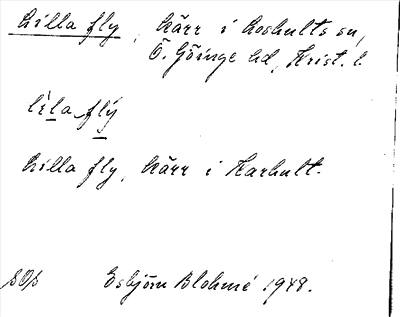 Lilla fly, kärr i Loshults sn,
Ö. Göinge hd, Krist. l.
lìla flý
Lilla fly, kärr i Karhult.
SOS Esbjörn Blohmé 1948.